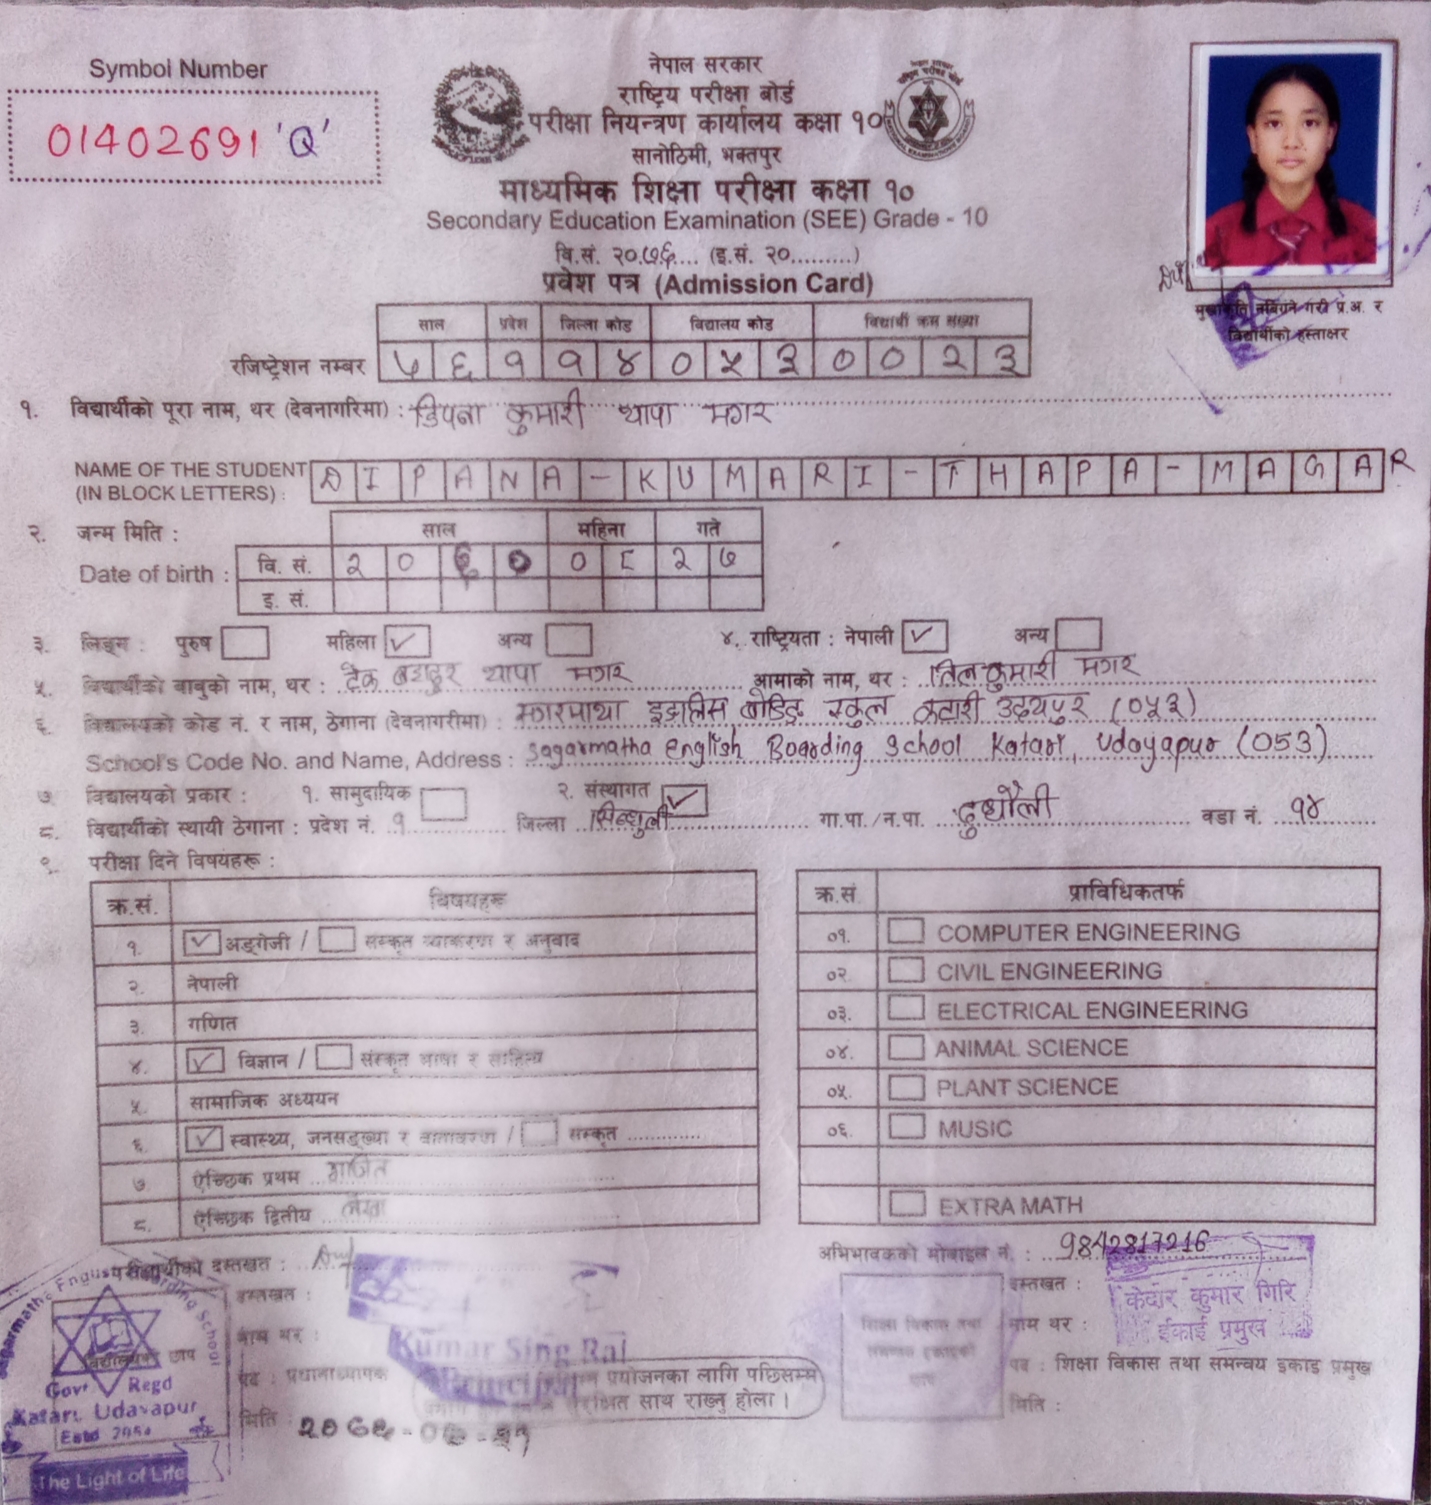 Symbol Number
01402691 'Q'
नेपाल सरकार
राष्ट्रिय परीक्षा बोर्ड
परीक्षा नियन्त्रण कार्यालय कक्षा १०
सानोठिमी, भक्तपुर
माध्यमिक शिक्षा परीक्षा कक्षा १०
Secondary Education Examination (SEE) Grade - 10
वि.सं. २०७६.... (इ.सं. २०.........)
प्रवेश पत्र (Admission Card)
मुखाकृति नबिग्रने गरी प्र.अ. र
विद्यार्थीको हस्ताक्षर
साल प्रदेश जिल्ला कोड विद्यालय कोड विद्यार्थी क्रम संख्या
रजिष्ट्रेशन नम्बर ७ ६ १ १ ४ ० ५ ३ ० ० २ ३
१. विद्यार्थीको पूरा नाम, थर (देवनागरिमा) : डिपना कुमारी थापा मगर
NAME OF THE STUDENT DIPANA-KUMARI-THAPA-MAGAR
(IN BLOCK LETTERS) :
२. जन्म मिति : साल महिना गते
Date of birth : वि. सं. २ ० ६ ० ० ८ २ ७
इ. सं.
३. लिङ्ग : पुरुष महिला ✓ अन्य ४. राष्ट्रियता : नेपाली ✓ अन्य
५. विद्यार्थीको बाबुको नाम, थर : टेक बहादुर थापा मगर आमाको नाम, थर : तिलकुमारी मगर
६. विद्यालयको कोड नं. र नाम, ठेगाना (देवनागरीमा) : सगरमाथा इङलिस बोर्डिङ स्कुल कटारी उदयपुर (०५३)
School's Code No. and Name, Address : Sagarmatha English Boarding School Katari, Udayapur (053)
७. विद्यालयको प्रकार : १. सामुदायिक २. संस्थागत ✓
८. विद्यार्थीको स्थायी ठेगाना : प्रदेश नं. १ जिल्ला सिन्धुली गा.पा./न.पा. दुधौली वडा नं. १४
९. परीक्षा दिने विषयहरू :
क्र.सं. विषयहरू
१. ✓ अङ्ग्रेजी / संस्कृत व्याकरण र अनुवाद
२. नेपाली
३. गणित
४. ✓ विज्ञान / संस्कृत भाषा र साहित्य
५. सामाजिक अध्ययन
६. ✓ स्वास्थ्य, जनसङ्ख्या र वातावरण / संस्कृत .............
७. ऐच्छिक प्रथम गणित
८. ऐच्छिक द्वितीय लेखा
क्र.सं. प्राविधिकतर्फ
०१. COMPUTER ENGINEERING
०२. CIVIL ENGINEERING
०३. ELECTRICAL ENGINEERING
०४. ANIMAL SCIENCE
०५. PLANT SCIENCE
०६. MUSIC
EXTRA MATH
परीक्षार्थीको दस्तखत :
अभिभावकको मोबाइल नं. : 9842817216
दस्तखत :
नाम थर : Kumar Sing Rai
पद : प्रधानाध्यापक Principal
प्रयोजनका लागि पछिसम्म
सुरक्षित साथ राख्नु होला ।
मिति :
Sagarmatha English Boarding School
विद्यालयको छाप
Govt Regd
Katari, Udayapur
Estd
The Light of Life
शिक्षा विकास तथा
समन्वय इकाइको
छाप
दस्तखत :
नाम थर : केदार कुमार गिरि
ईकाई प्रमुख
पद : शिक्षा विकास तथा समन्वय इकाइ प्रमुख
मिति :